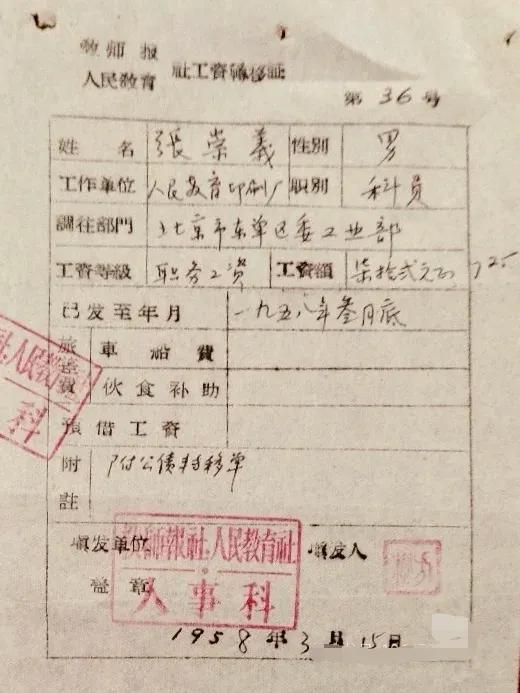 教师报
人民教育 社工資轉移証
第 36 号
姓名 張崇義 性别 男
工作单位 人民教育印刷厂 职别 科員
調往部門 北京市东单区委工业部
工資等級 职务工资 工資額 柒拾弍元正 72
已发至年月 一九五八年叁月底
旅途費 車船費
伙食补助
預借工資
附註 附公债转移单
填发单位盖章 填发人
教師報社·人民教育社
人事科
1958年3月15日
人民教育
科